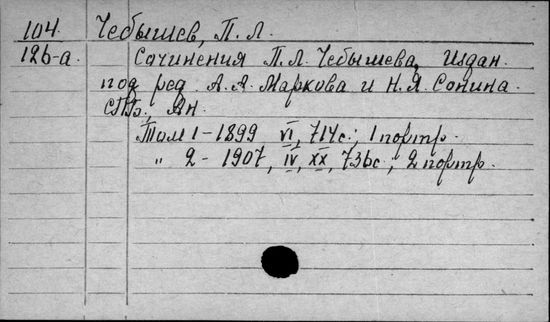 104. Чебышев, П. Л.
126-а. Сочинения П. Л. Чебышева, Издан.
под ред. А. А. Маркова и Н. Я. Сонина.
СПБ, Ан.
Том 1 - 1899 VI, 714с; 1 портр.
" 2 - 1907, IV, XX, 736с; 2 портр.